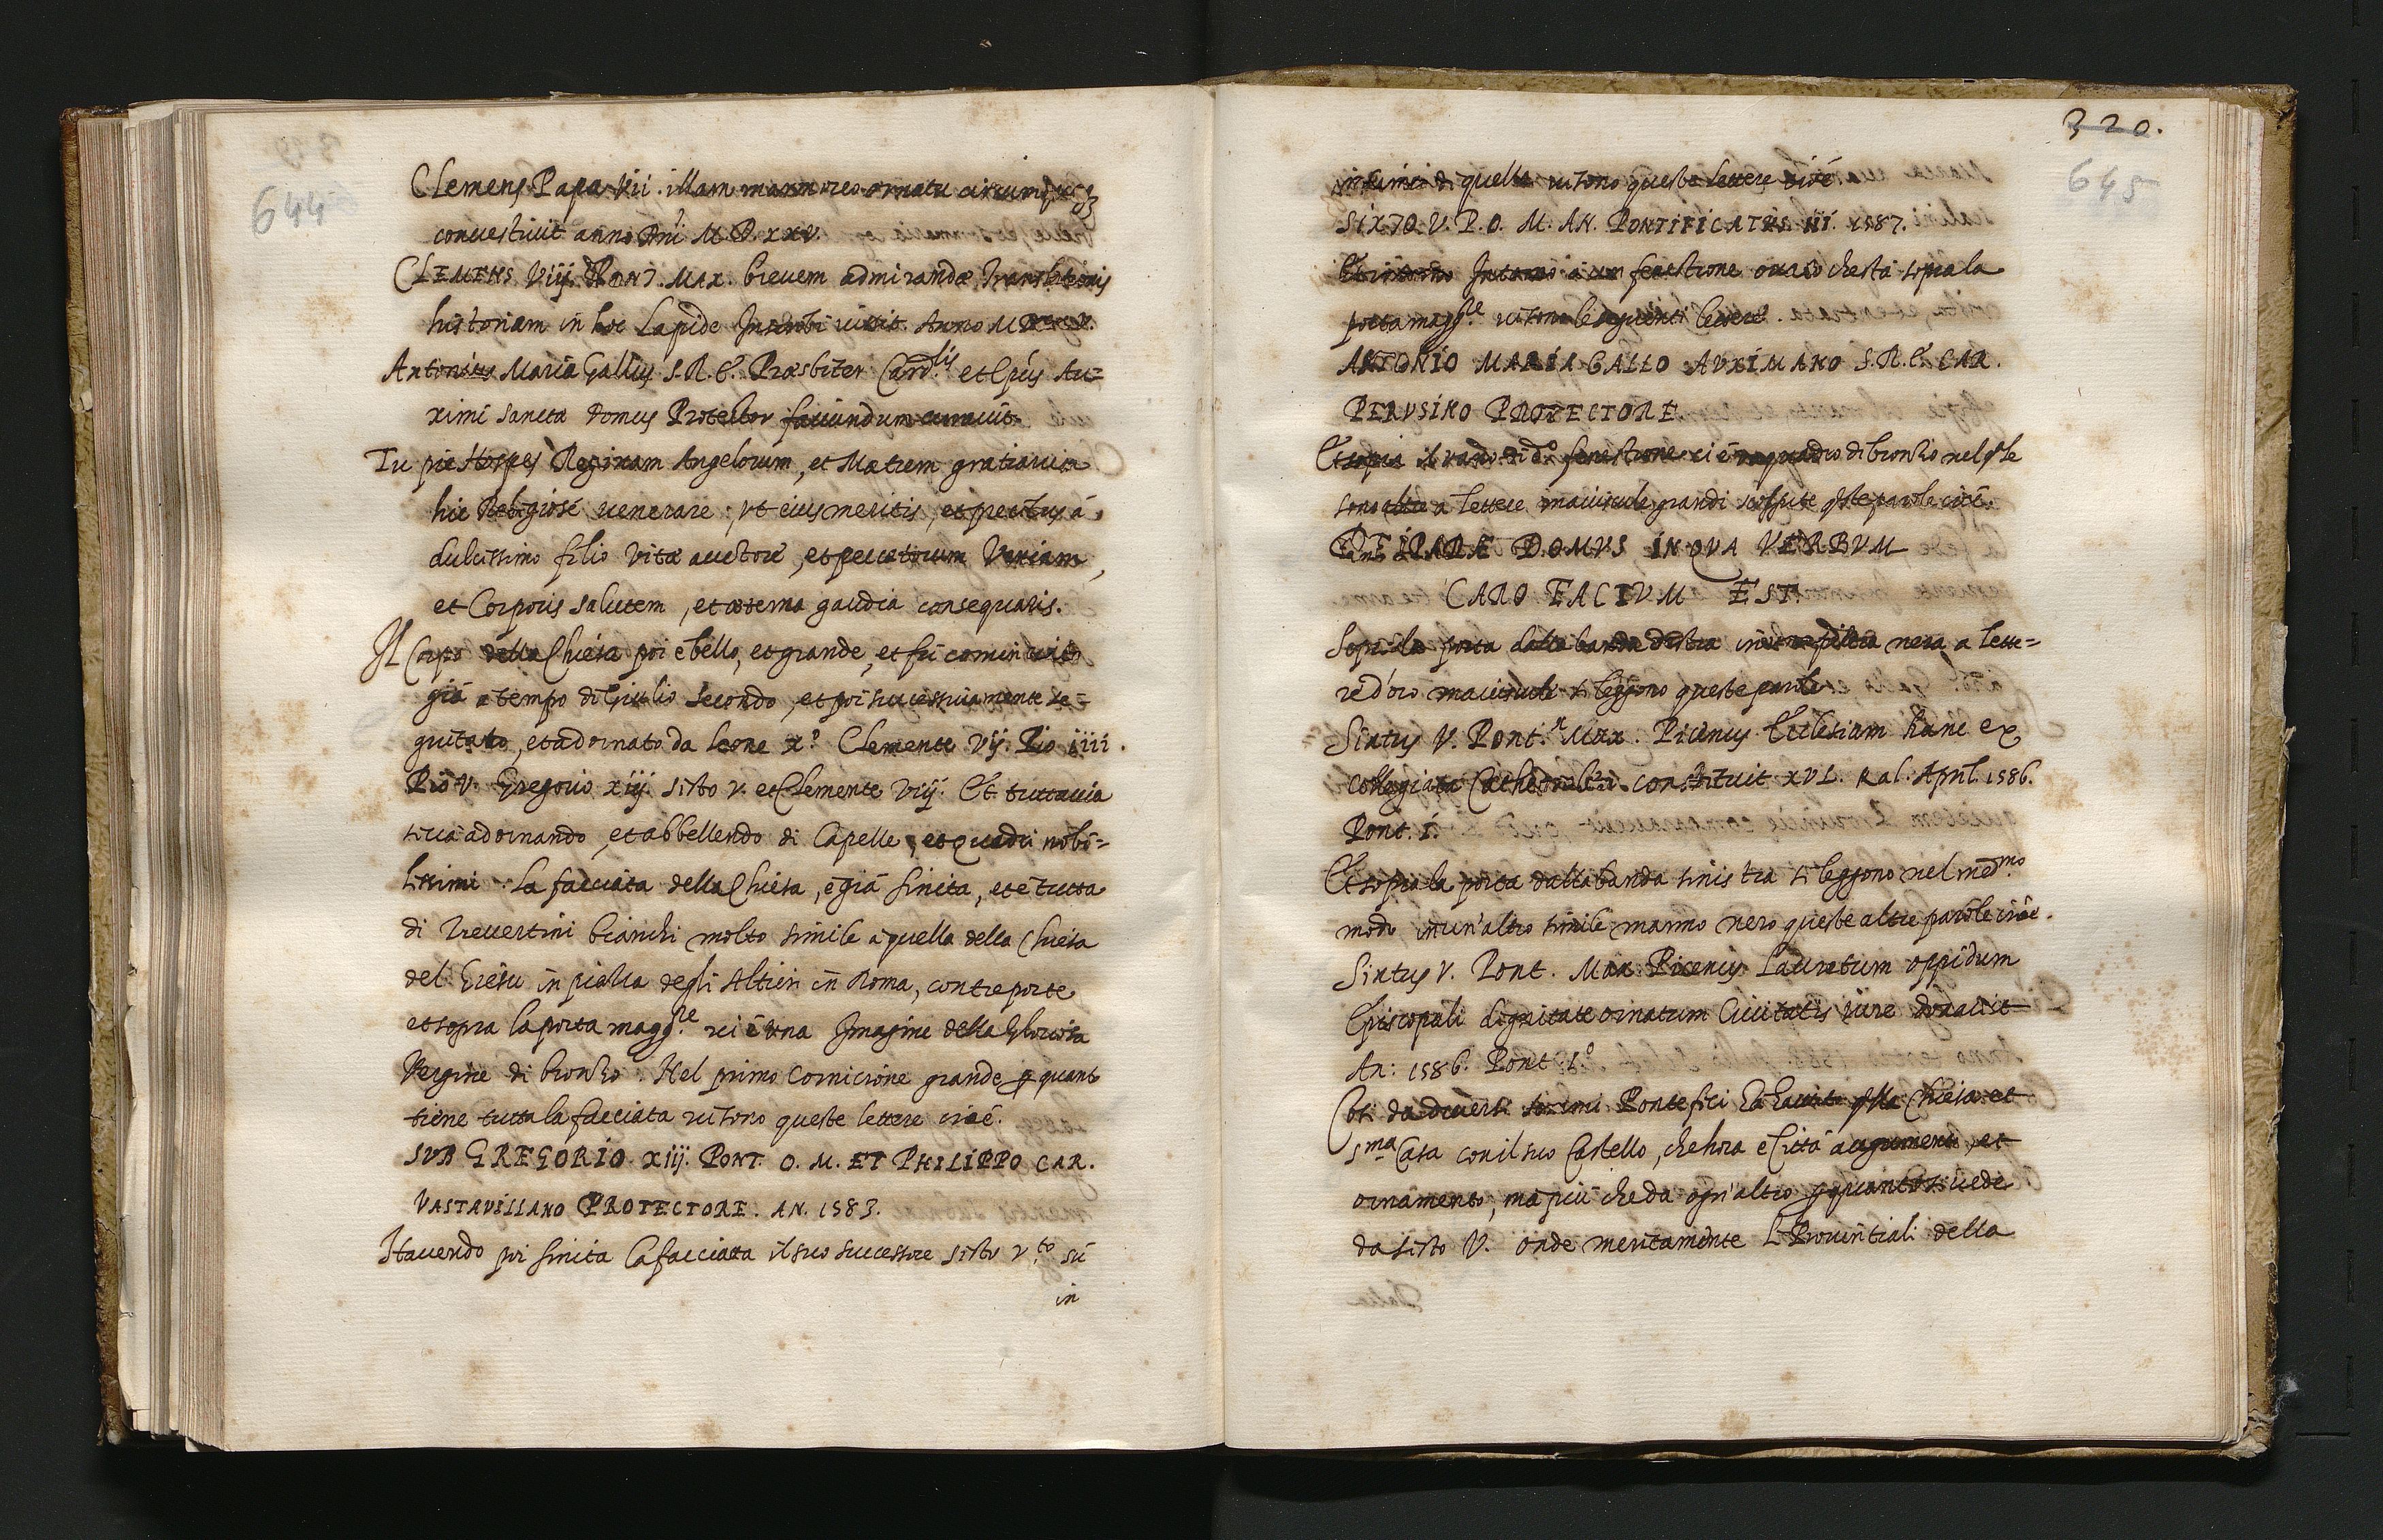 644
Clemens Papa Vii. illam marmoreo ornatu circumquaq3
conuestiuit anno Dnī M D. XXV.
CLEMENS. Viij. PONT. MAX. breuem admirandæ Translationis
historiam in hoc Lapide Inscribi iussit. Anno M
Antonius Maria Gallus S. R. E. Præsbiter Card.lis et Epūs Au=
ximi sanctæ Domus Protector faciundum curauit.
Tu pie Hospes Reginam Angelorum, et Matrem gratiarum
hic Religiosé uenerare, vt eius meritis, et precibus á
dulcissimo filio Vitæ auctore, et peccatorum Veniam,
et Corporis salutem, et æterna gaudia consequaris.
Il Corpo della Chiesa poi è bello, et grande, et fú cominciato
giá a tempo di Giulio secondo, et poi successiuamente se=
guitato, et adornato da Leone X.º Clemente Vij. Pio iiii.
Pio V. Gregorio xiij. sisto V. et Clemente Viij. Et tuttauia
si ua adornando, et abbellendo di Capelle, et Quadri nobi=
lissimi. La facciata della Chiesa, è giá finita, et è tutta
di Treuertini bianchi molto simile á quella della Chiesa
del Giesu in piazza degli Altieri in Roma, con tre porte
et sopra la porta magg.re ui è una Imagine della Gloriosa
Vergine di bronzo. Nel primo Cornicione grande ꝑ quanto
tiene tutta la facciata ui sono queste lettere cioé.
SVB GREGORIO. Xiij. PONT. O. M. ET PHILIPPO CAR.
VASTAVILLANO PROTECTORE. AN. 1583.
Hauendo poi finita la facciata il suo successore sisto V.to sú
in
320.
645
in cima di quella ui sono queste lettere cioé
SIXTO. V. P. O. M. AN. PONTIFICATVS. III. 1587.
Et intorno á un fenestrone ouato che sta sopra la
porta magg.re ui sono le seguenti lettere.
ANTONIO MARIA GALLO AVXIMANO S. R. E. CAR.
PERVSINO PROTECTORE.
Et sopra il uano di d.º fenestrone ui é un quadro di bronzo nel qle
sono a lettere maiuscule grandi scolpite qste parole cioé.
DEIPARÆ DOMVS IN QVA VERBVM
CARO FACTVM EST.
Sopra la porta dalla banda destra in una pietra nera a lette=
re d'oro maiuscule si leggono queste parole
Sixtus V. Pont.x Max. Picenus Ecclesiam hanc ex
Collegiata Cathedralem constituit XVI. Kal. April. 1586.
Pont. i.
Et sopra la porta dalla banda sinistra si leggono nel med.mo
modo in un'altro simile marmo nero queste altre parole cioé.
Sixtus V. Pont. Max. Picenus Lauretum oppidum
Episcopali dignitate ornatum Ciuitatis iure donauit
An: 1586. Pont. i.º
Cosi da diuersi sommi Pontefici há hauuto qsta Chiesa et
S.ma Casa con il suo Castello, che hora è Cittá augumento, et
ornamento, ma piú che da ogn'altro ꝑ quanto si uede
da sisto V. onde meritamente L Prouintiali della